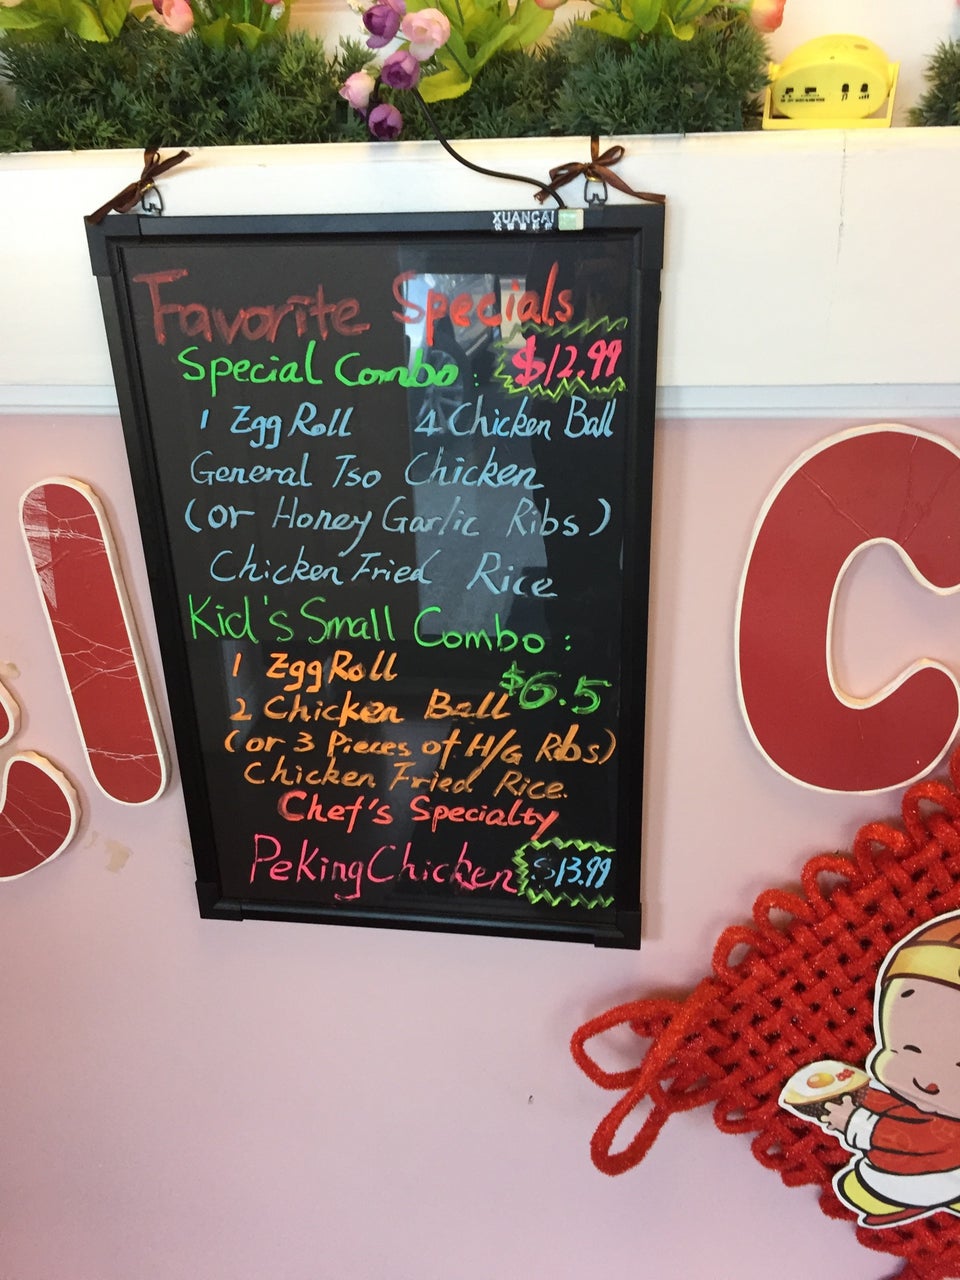 XUANCAI
Favorite Specials
Special Combo: $12.99
1 Egg Roll 4 Chicken Ball
General Tso Chicken
(or Honey Garlic Ribs)
Chicken Fried Rice
Kid's Small Combo:
1 Egg Roll
$6.5
2 Chicken Ball
(or 3 Pieces of H/G Ribs)
Chicken Fried Rice.
Chef's Specialty
Peking Chicken $13.99
C